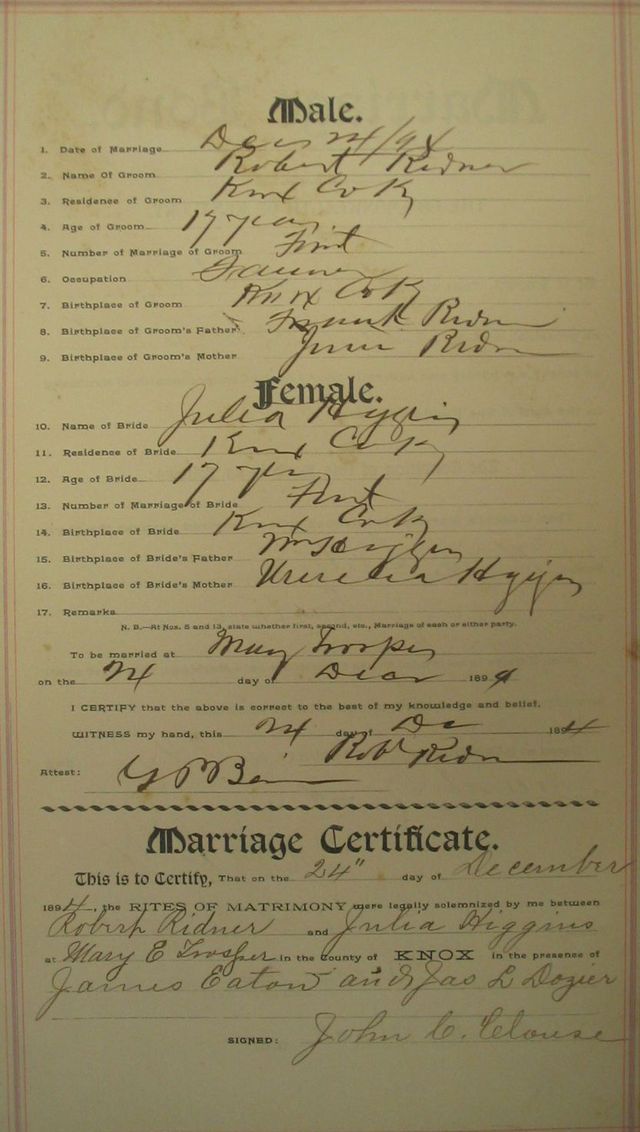 Male.
1. Date of Marriage Dec 24/94
2. Name Of Groom Robert Ridner
3. Residence of Groom Knox Co Ky
4. Age of Groom 19 years
5. Number of Marriage of Groom First
6. Occupation Farmer
7. Birthplace of Groom Knox Co Ky
8. Birthplace of Groom's Father Frank Ridner
9. Birthplace of Groom's Mother Ridner
Female.
10. Name of Bride Julia Higgins
11. Residence of Bride Knox Co Ky
12. Age of Bride 17 years
13. Number of Marriage of Bride First
14. Birthplace of Bride Knox Co Ky
15. Birthplace of Bride's Father Wm Higgins
16. Birthplace of Bride's Mother Higgins
17. Remarks
N. B.—At Nos. 5 and 13, state whether first, second, etc., Marriage of each or either party.
To be married at Mary Trosper
on the 24 day of Decr 1894
I CERTIFY that the above is correct to the best of my knowledge and belief.
WITNESS my hand, this 24 day of Dec 1894
Robt Ridner
Attest:
Marriage Certificate.
This is to Certify, That on the 24" day of December
1894, the RITES OF MATRIMONY were legally solemnized by me between
Robert Ridner and Julia Higgins
at Mary E Trosper in the County of KNOX in the presence of
James Eaton and Jas L Dozier
SIGNED: John C. Clouse